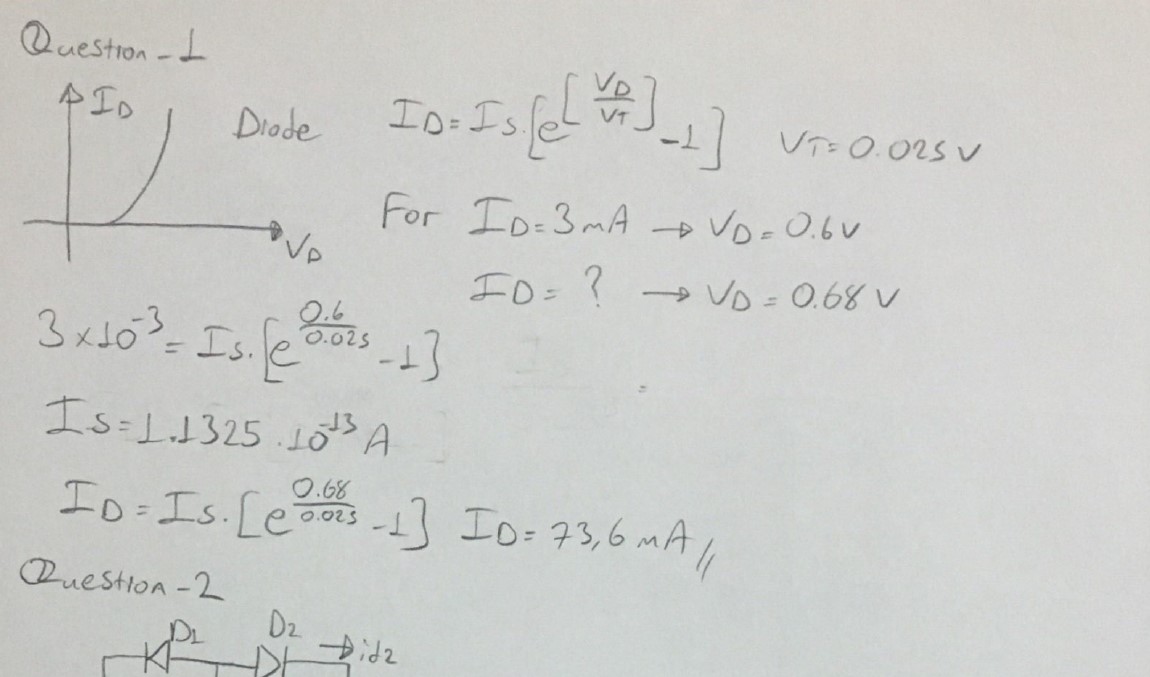 Question-1
ID
Diode
ID=Is.[e[VD/VT]-1]
VT=0.025V
For ID=3mA → VD=0.6V
VD
ID=? → VD=0.68V
3×10^-3=Is.[e^0.6/0.025-1]
IS=1.1325.10^-13 A
ID=Is.[e^0.68/0.025-1] ID=73,6mA//
Question-2
D1 D2 →id2